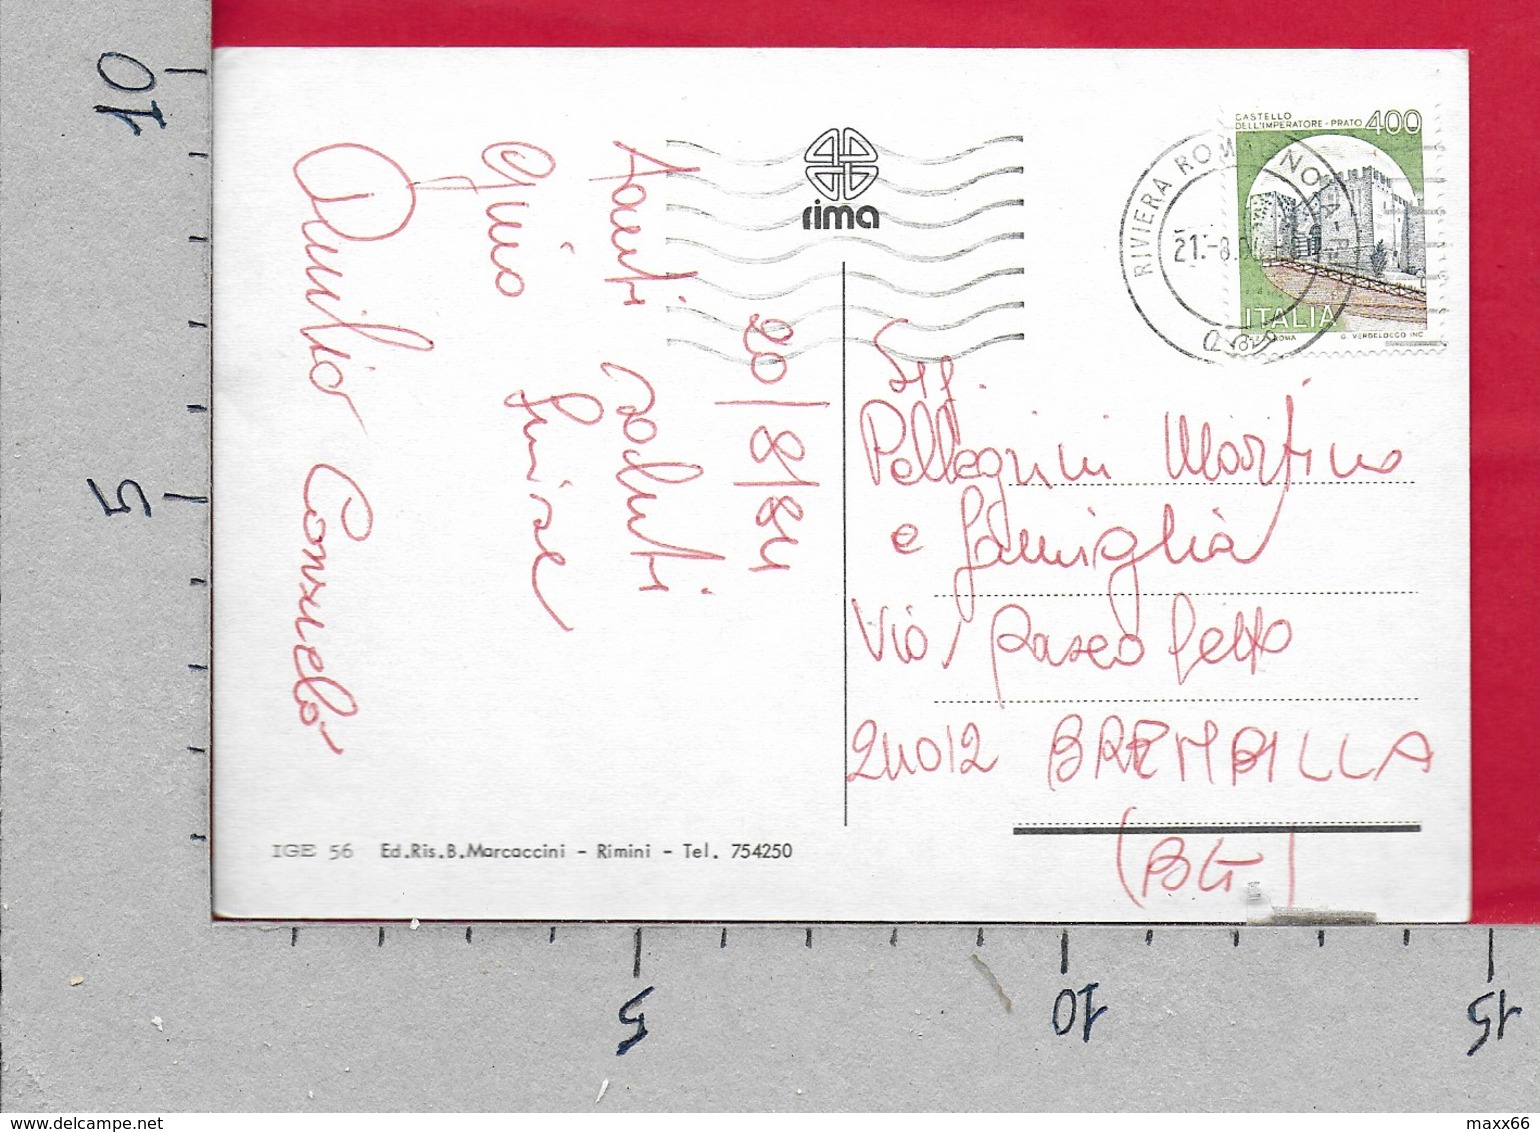 10
5
5
10
15
rima
CASTELLO
DELL'IMPERATORE - PRATO 400
ITALIA
ROMA G. VERDELOCCO INC.
RIVIERA ROMAGNOLA
21.-8.
20/8/84
Tanti saluti
Gino Luisa
Duilio Consuelo
Pellegrini Martino
e famiglia
Via
24012 BREMBILLA
(BG)
IGE 56 Ed.Ris.B.Marcaccini - Rimini - Tel. 754250
www.delcampe.net
maxx66